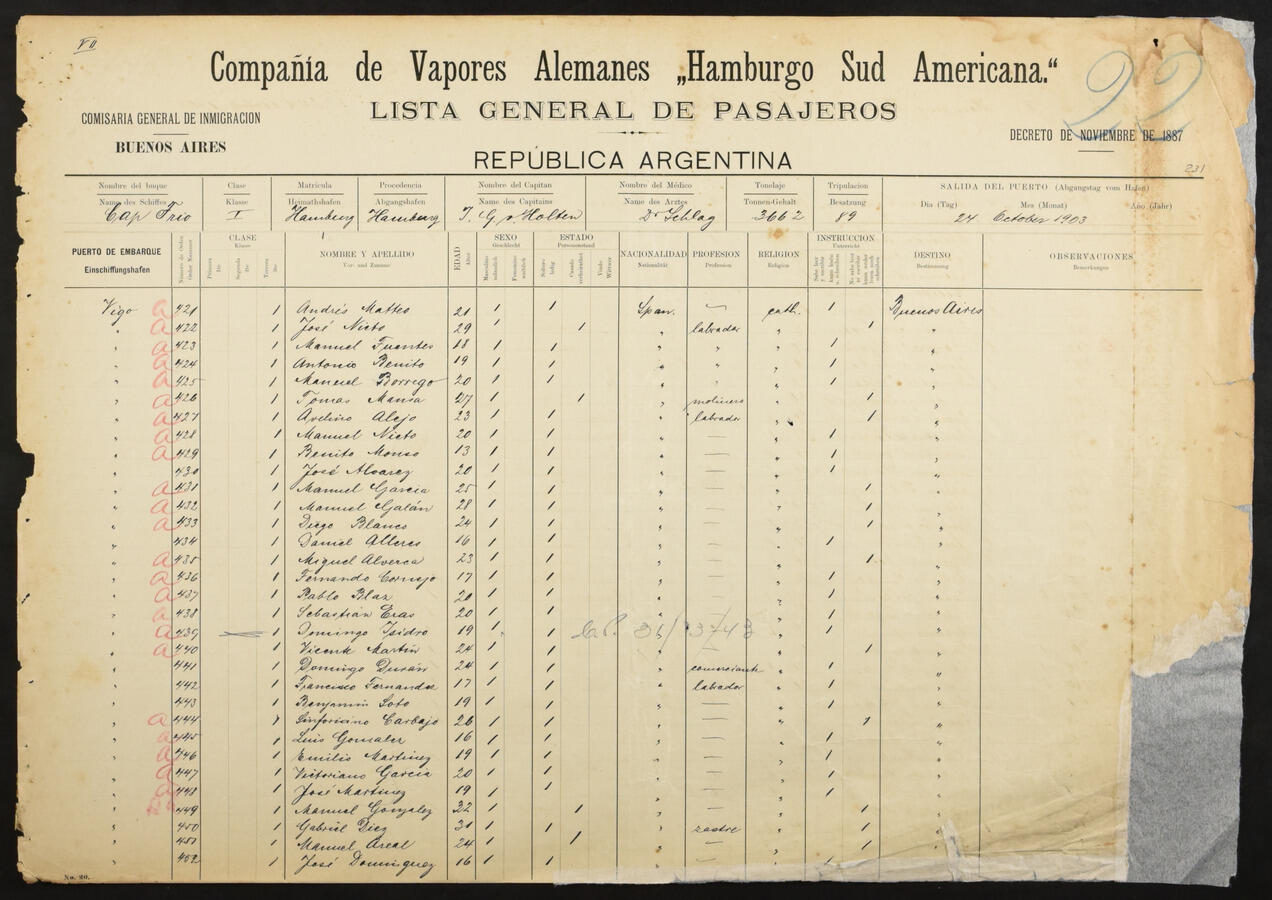 VII
22
Compañía de Vapores Alemanes „Hamburgo Sud Americana.“
LISTA GENERAL DE PASAJEROS
COMISARIA GENERAL DE INMIGRACION
BUENOS AIRES
DECRETO DE NOVIEMBRE DE 1887
REPÚBLICA ARGENTINA
231
Nombre del buque Clase Matrícula Procedencia Nombre del Capitan Nombre del Médico Tonelaje Tripulacion SALIDA DEL PUERTO (Abgangstag vom Hafen)
Name des Schiffes Klasse Heimathshafen Abgangshafen Name des Capitains Name des Arztes Tonnen-Gehalt Besatzung Dia (Tag) Mes (Monat) Año (Jahr)
Cap Frio I Hamburg Hamburg J. G. v Holten Dr Schlag 3662 89 24 October 1903
PUERTO DE EMBARQUE Einschiffungshafen
Número de Orden
CLASE Klasse Primera Segunda Tercera
NOMBRE Y APELLIDO Vor- und Zuname
EDAD Alter
SEXO Geschlecht Masculino männlich Femenino weiblich
ESTADO Personenstand Soltero ledig Casado verheirathet Viudo Wittwer
NACIONALIDAD Nationalität
PROFESION Profession
RELIGION Religion
INSTRUCCION Unterricht
DESTINO Bestimmung
OBSERVACIONES Bemerkungen
Vigo a 421 1 Andrés Matteo 21 1 1 Span. — cath. 1 Buenos Aires
" a 422 1 José Nieto 29 1 1 " labrador " 1 "
" a 423 1 Manuel Fuentes 18 1 1 " " " 1 "
" a 424 1 Antonio Benito 19 1 1 " " " 1 "
" a 425 1 Manuel Borrego 20 1 1 " " " 1 "
" a 426 1 Tomas Mansa 27 1 1 " molinero " 1 "
" a 427 1 Avelino Alejo 23 1 1 " labrador " 1 "
" a 428 1 Manuel Nieto 20 1 1 " — " 1 "
" a 429 1 Benito Monso 13 1 1 " — " 1 "
" 430 1 José Alvarez 20 1 1 " — " 1 "
" a 431 1 Manuel Garcia 25 1 1 " — " 1 "
" a 432 1 Manuel Galán 28 1 1 " — " 1 "
" a 433 1 Diego Blanco 24 1 1 " — " 1 "
" 434 1 Daniel Alleres 16 1 1 " — " 1 "
" a 435 1 Miguel Alverca 23 1 1 " — " 1 "
" a 436 1 Fernando Cornejo 17 1 1 " — " 1 "
" a 437 1 Pablo Blaz 20 1 1 " — " 1 "
" a 438 1 Sebastián Eras 20 1 1 " — " 1 "
" a 439 1 Domingo Isidro 19 1 " — " 1 "
" a 440 1 Vicente Martín 24 1 1 " — " 1 "
" 441 1 Domingo Durán 24 1 1 " comerciante " 1 "
" 442 1 Francisco Fernandez 17 1 1 " labrador " 1 "
" 443 1 Benjamin Soto 19 1 1 " — " 1 "
" a 444 1 Sinforiano Carbajo 26 1 1 " — " 1 "
" a 445 1 Luis Gonzalez 16 1 1 " — " 1 "
" a 446 1 Emilio Martinez 19 1 1 " — " 1 "
" a 447 1 Victoriano Garcia 20 1 1 " — " 1 "
" a 448 1 José Martinez 19 1 1 " — " 1 "
" 449 1 Manuel Gonzalez 32 1 1 " — " 1 "
" 450 1 Gabriel Diez 31 1 1 " zastre " 1 "
" 451 1 Manuel Areal 24 1 1 " — " 1 "
" 452 1 José Dominguez 16 1 1 " — " 1 "
No. 20.